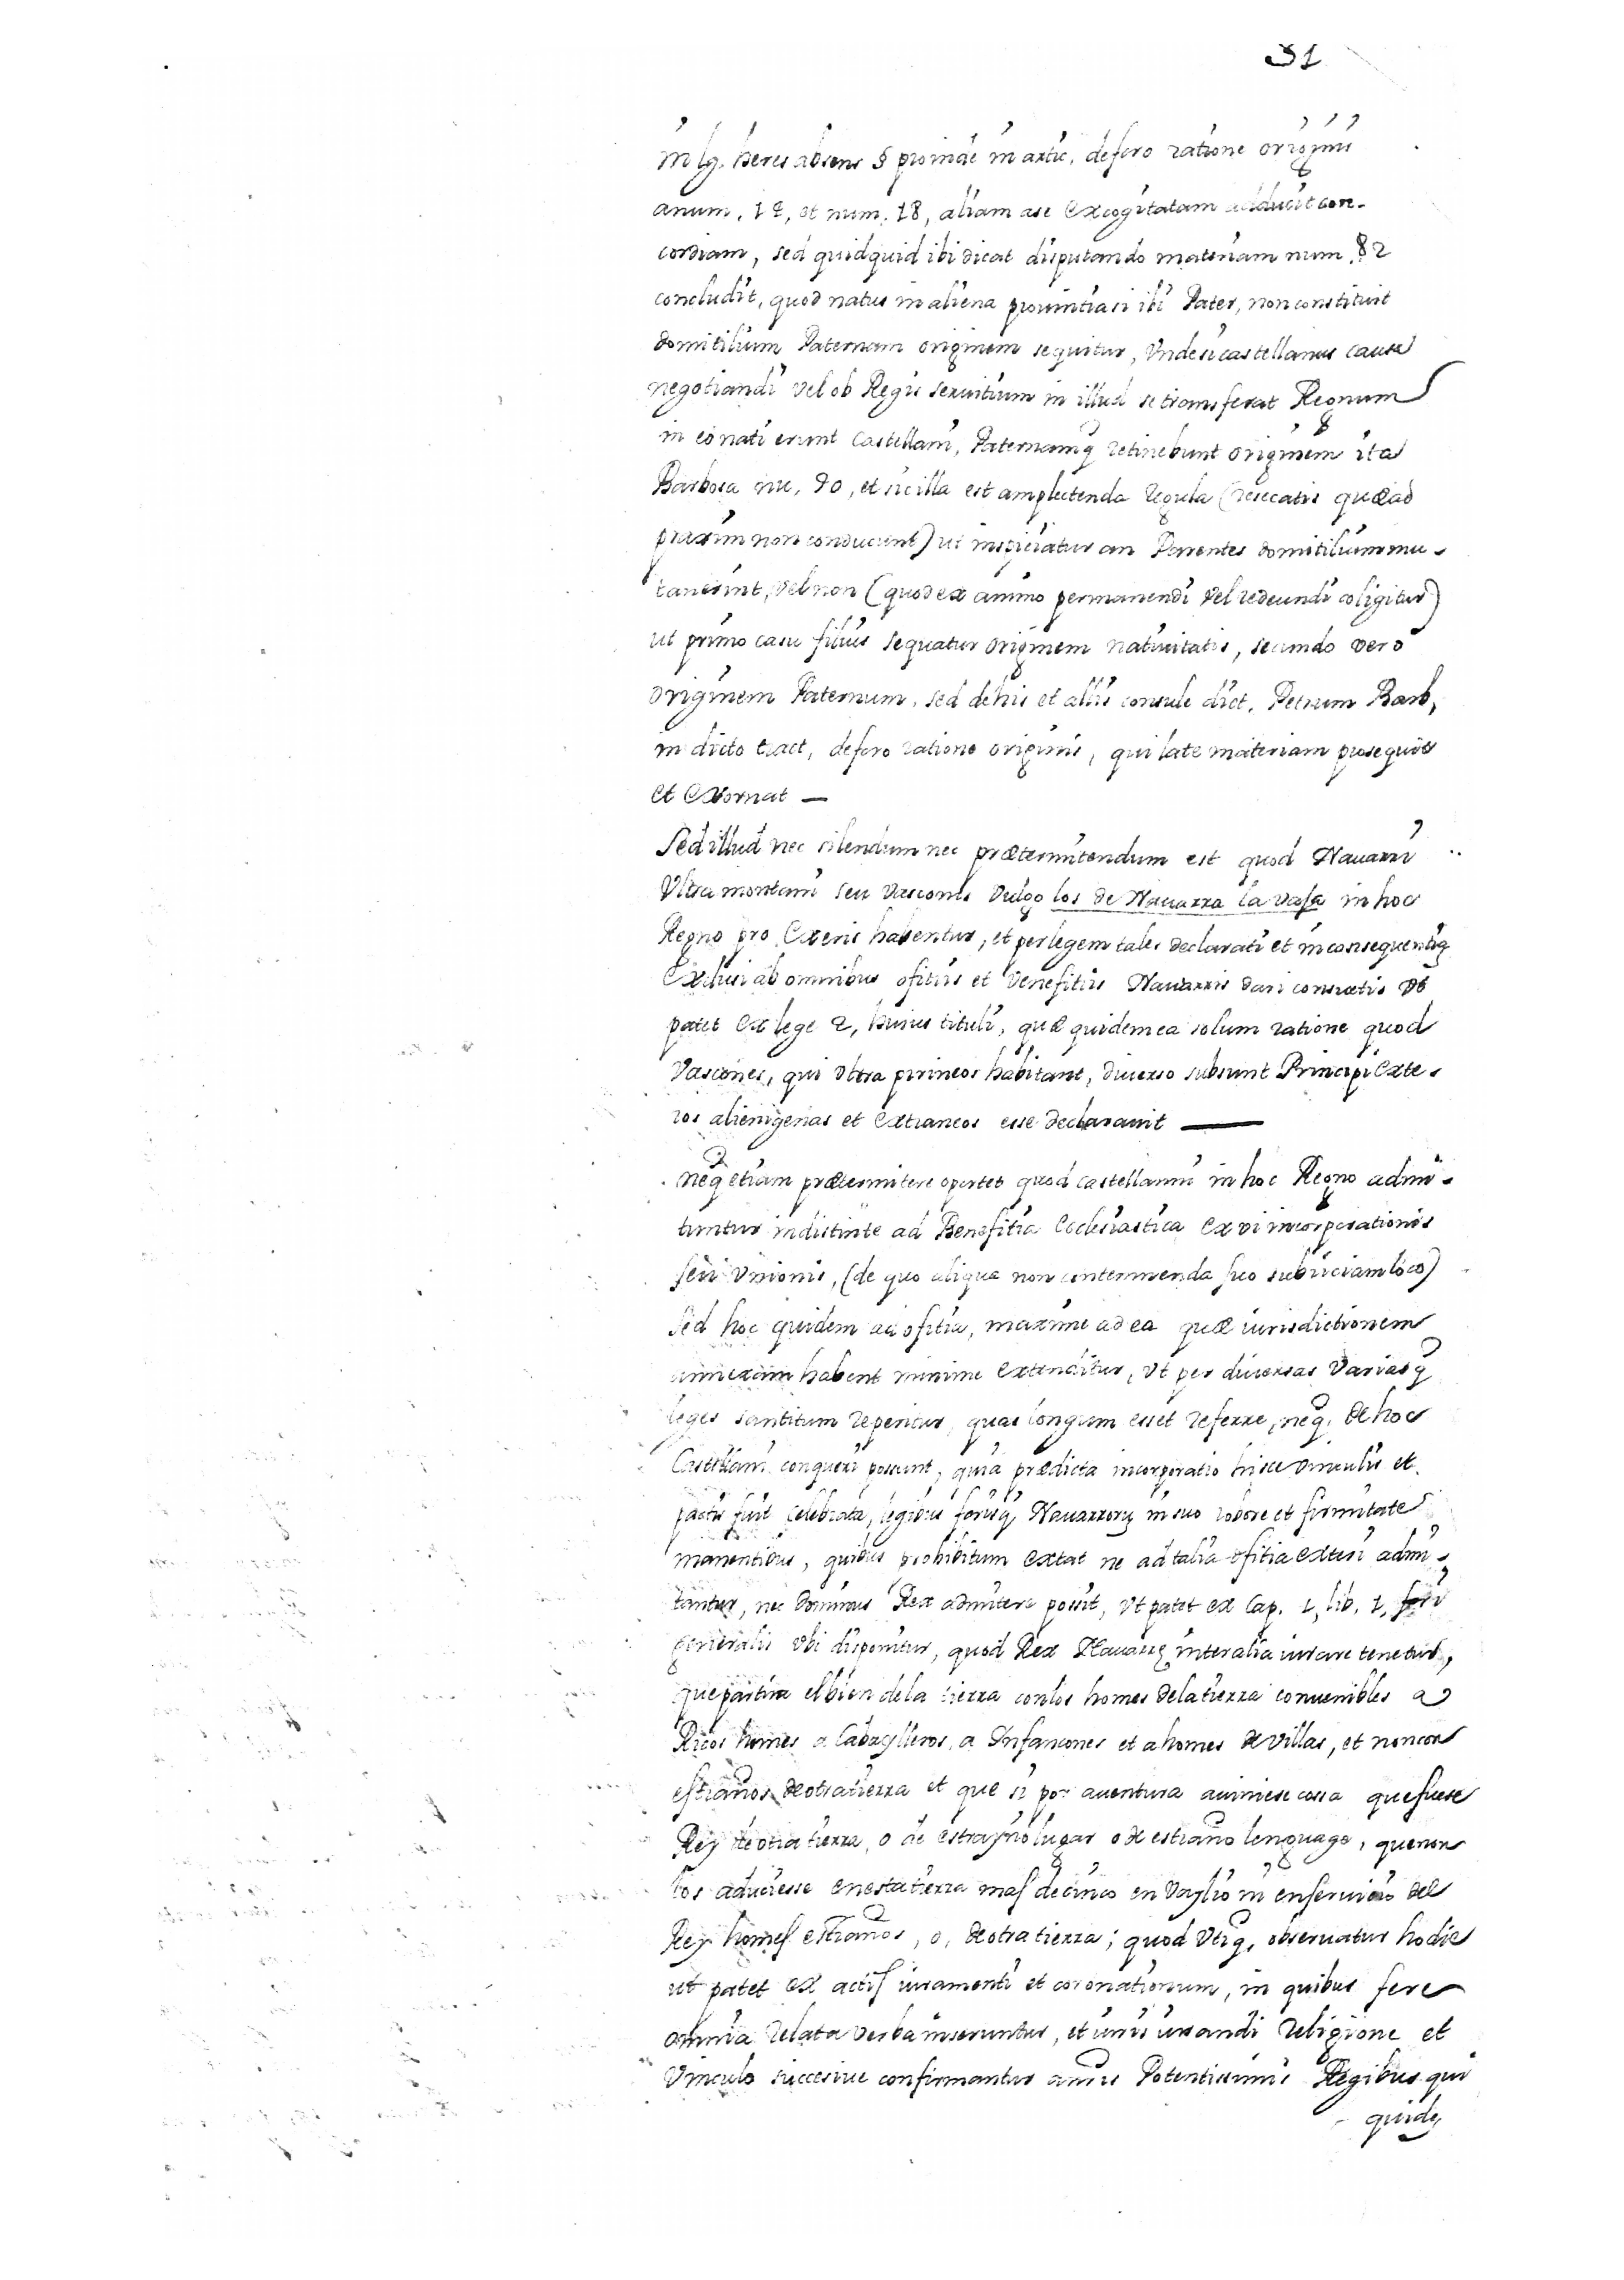 31
in lg. heres absens § proinde in artic, de foro ratione originis
a num, 12, et num. 18, aliam a se excogitatam adducit con-
cordiam, sed quidquid ibi dicat disputando materiam num. 82
concludit, quod natus in aliena provintia si ibi Pater, non constituit
domitilium Paternam originem sequitur, Unde si castellanus causa
negotiandi vel ob Regis servitium in illud se transferat Regnum
in eo nati erunt Castellani, Paternamq retinebunt originem ita
Barbosa nu, 90, et sic illa est amplectenda regula (resecatis quæ ad
praxim non conducunt) ut inspiciatur an Parentes domitilium mu-
taverint, vel non (quod ex animo permanendi vel redeundi coligitur)
ut primo casu filius sequatur originem nativitatis, secundo vero
originem Paternam, sed de his et aliis consule dict. Petrum Barb,
in dicto tract, de foro ratione originis, qui late materiam prosequitur
et exornat —
Sed illud nec silendum nec prætermitendum est quod Navarri
Ultra montani seu Vascones vulgo los de Navarra la vaja in hoc
Regno pro Exteris habentur, et per legem tales declarati et in consequentiã
Exclusi ab omnibus ofitiis et Venefitiis Navarris dari consuetis Vt
patet ex lege 2, huius tituli, quæ quidem ea solum ratione quod
Vascones, qui Vltra pirineos habitant, diverso subsunt Principi exte-
ros alienigenas et extraneos esse declaravit —
neq etiam prætermitere oportet quod castellani in hoc Regno admi-
tuntur indistinte ad Benefitia Ecclesiastica ex vi incorporationis
seu Vnionis, (de quo aliqua non contemnenda suo subiiciam loco)
sed hoc quidem ad ofitia, maxime ad ea quæ iurisdictionem
annexam habent minime extenditur, Vt per diversas Variasq
leges santitum reperitur, quas longum esset referre, neq, de hoc
Castellani conqueri possunt, quia prædicta incorporatio hisce vinculis et
pactis fuit celebrata, legibus forisq, Navarrorũ in suo robore et firmitate
manentibus, quibus prohibitum extat ne ad talia ofitia exteri admi-
tantur, nec dominus Rex admitere possit, Vt patet ex Cap. 1, lib. 1, fori
generalis Vbi disponitur, quod Rex Navarrę inter alia iurare tenetur,
que partira el bien de la tierra con los homes de la tierra convenibles a
Ricos homes a Cabaylleros, a Infancones et a homes de villas, et non con
estraños de otra tierra et que si por aventura aviniese cosa que fuese
Rey de otra tierra, o de estrayno lugar o de estraño lenguage, que non
los aduciesse en esta tierra mas de cinco en Vaylio ni en servicio del
Rey homes estraños, o, de otra tierra; quod Vtiq, observatur hodie
ut patet ex actis iuramenti et coronationum, in quibus fere
omnia relata verba inseruntur, et iuris iurandi religione et
Vinculo succesive confirmantur a nris Potentissimis Regibus qui
quidẽ